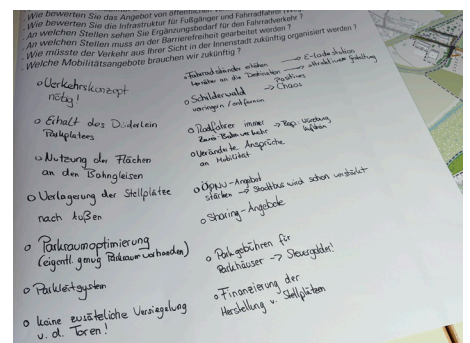 - Wie bewerten Sie das Angebot von öffentlichen
- Wie bewerten Sie die Infrastruktur für Fußgänger und Fahrradfahrer
- An welchen Stellen sehen Sie Ergänzungsbedarf für den Fahrradverkehr ?
- An welchen Stellen muss an der Barrierefreiheit gearbeitet werden ?
- Wie müsste der Verkehr aus Ihrer Sicht in der Innenstadt zukünftig organisiert werden ?
- Welche Mobilitätsangebote brauchen wir zukünftig ?
o Verkehrskonzept
nötig!
o Erhalt des Döderlein
Parkplatzes
o Nutzung der Flächen
an den Bahngleisen
o Verlagerung der Stellplätze
nach Außen
o Parkraumoptimierung
(eigentl. genug Parkraum vorhanden)
o Parkleitsystem
o keine zusätzliche Versiegelung
v. d. Toren!
o Fahrradständer erhöhen → E-Ladestation
an die Destination → attraktivere Gestaltung
o Schilderwald → Positives
verringern / entfernen Chaos
o Radfahrer immer → Bsp. Würzburg
verkehr
o Veränderte Ansprüche
an Mobilität
o ÖPNV-Angebot
stärken → Stadtbus wird schon verstärkt
o Sharing-Angebote
o Parkgebühren für
Parkhäuser → Steuergelder!
o Finanzierung der
Herstellung v. Stellplätzen